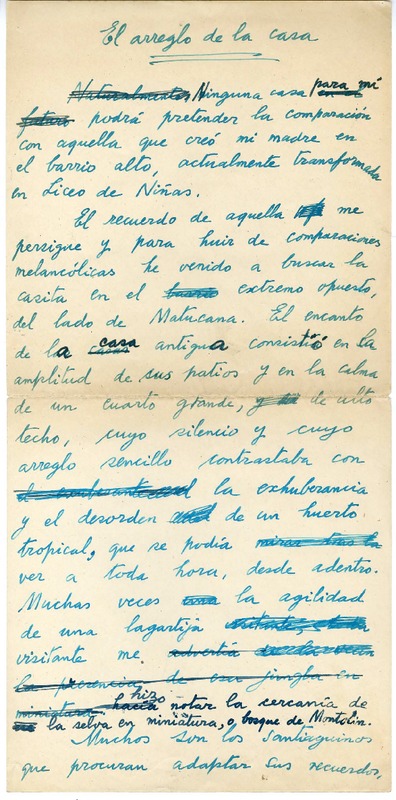 El arreglo de la casa
Naturalmente, Ninguna casa para mí
futuro podrá pretender la comparación
con aquella que creó mi madre en
el barrio alto, actualmente transformada
en Liceo de Niñas.
El recuerdo de aquella me
persigue y para huir de comparaciones
melancólicas he venido a buscar la
casita en el barrio extremo opuesto,
del lado de Matucana. El encanto
de la casa antigua consistió en la
amplitud de sus patios y en la calma
de un cuarto grande, de alto
techo, cuyo silencio y cuyo
arreglo sencillo contrastaba con
la exhuberancia
y el desorden de un huerto
tropical, que se podía
ver a toda hora, desde adentro.
Muchas veces la agilidad
de una lagartija
visitante me advertía
la presencia de esa jungla en
miniatura hacía hizo notar la cercanía de
la selva en miniatura, o bosque de Montolín.
Muchos son los Santiaguinos
que procuran adaptar sus recuerdos,